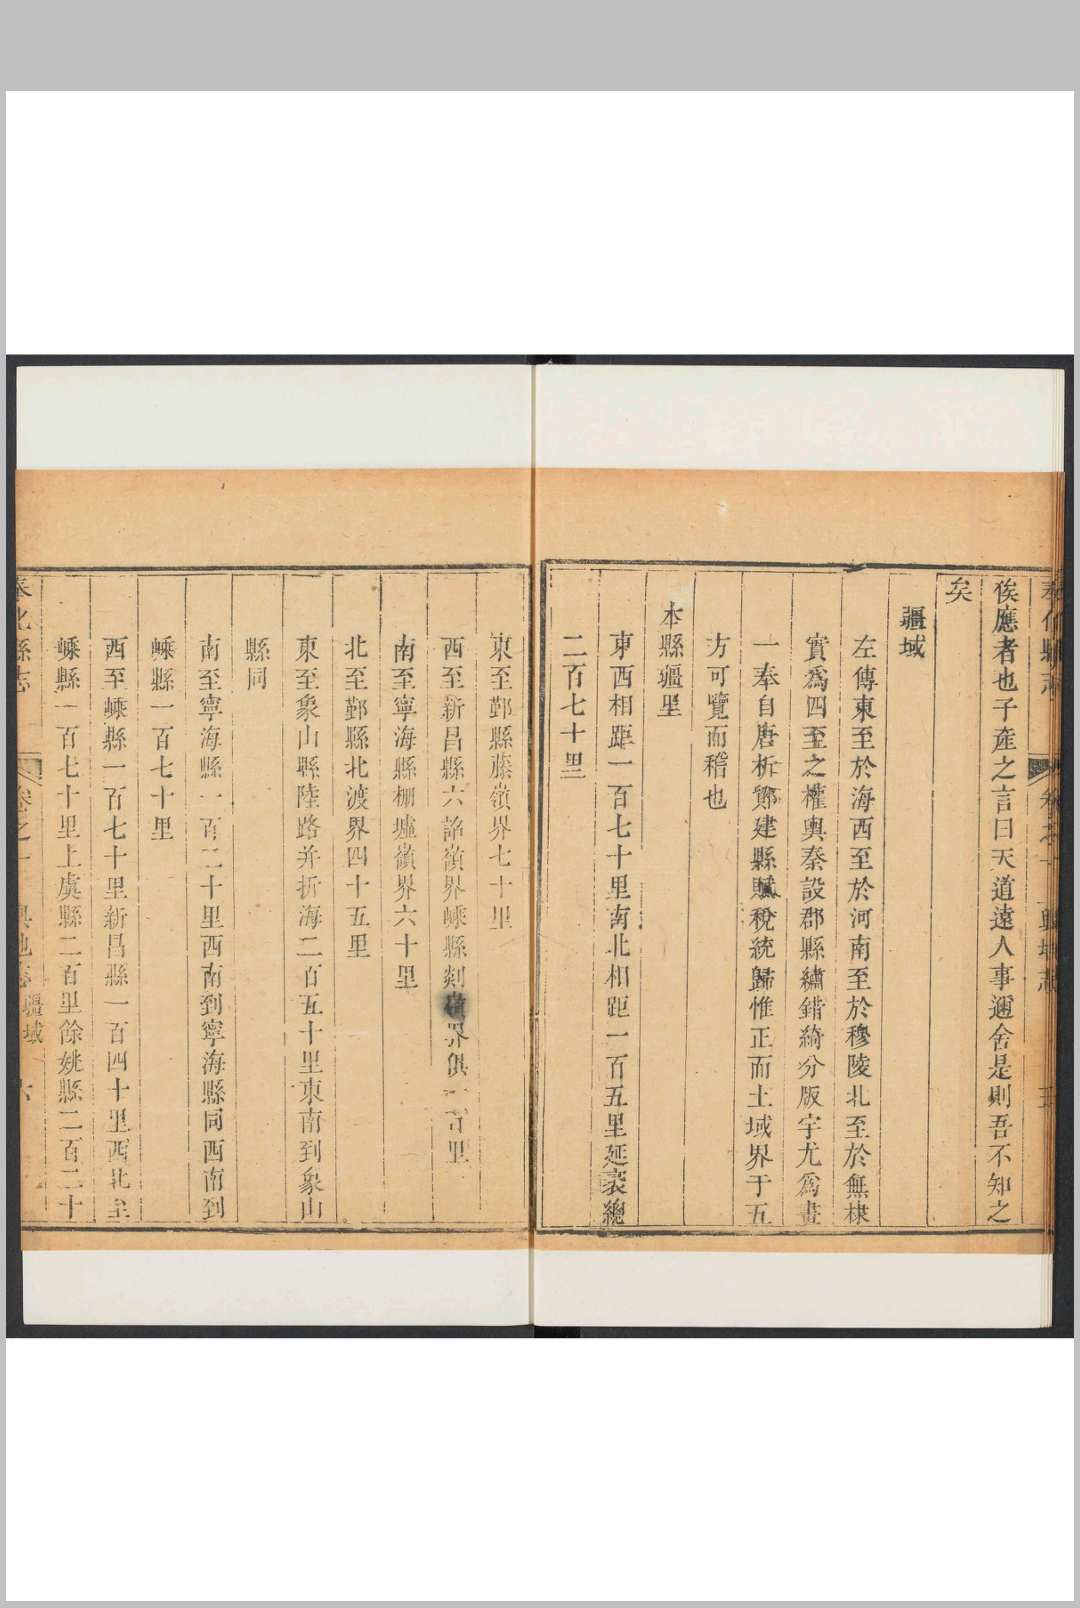 俟應者也子產之言曰天道遠人事邇舍是則吾不知之
矣
疆域
左傳東至於海西至於河南至於穆陵北至於無棣
實爲四至之權輿秦設郡縣繡錯綺分版宇尤爲畫
一奉自唐析鄮建縣賦稅統歸惟正而土域界于五
方可覽而稽也
本縣疆里
東西相距一百七十里南北相距一百五里延袤總
二百七十里
東至鄞縣藤嶺界七十里
西至新昌縣六詔嶺界嵊縣剡界俱一百里
南至寧海縣柵墟嶺界六十里
北至鄞縣北渡界四十五里
東至象山縣陸路并折海二百五十里東南到象山
縣同
南至寧海縣一百二十里西南到寧海縣同西南到
嵊縣一百七十里
西至嵊縣一百七十里新昌縣一百四十里西北至
嵊縣一百七十里上虞縣二百里餘姚縣二百二十
奉化縣志 卷之一 輿地志 疆域 六